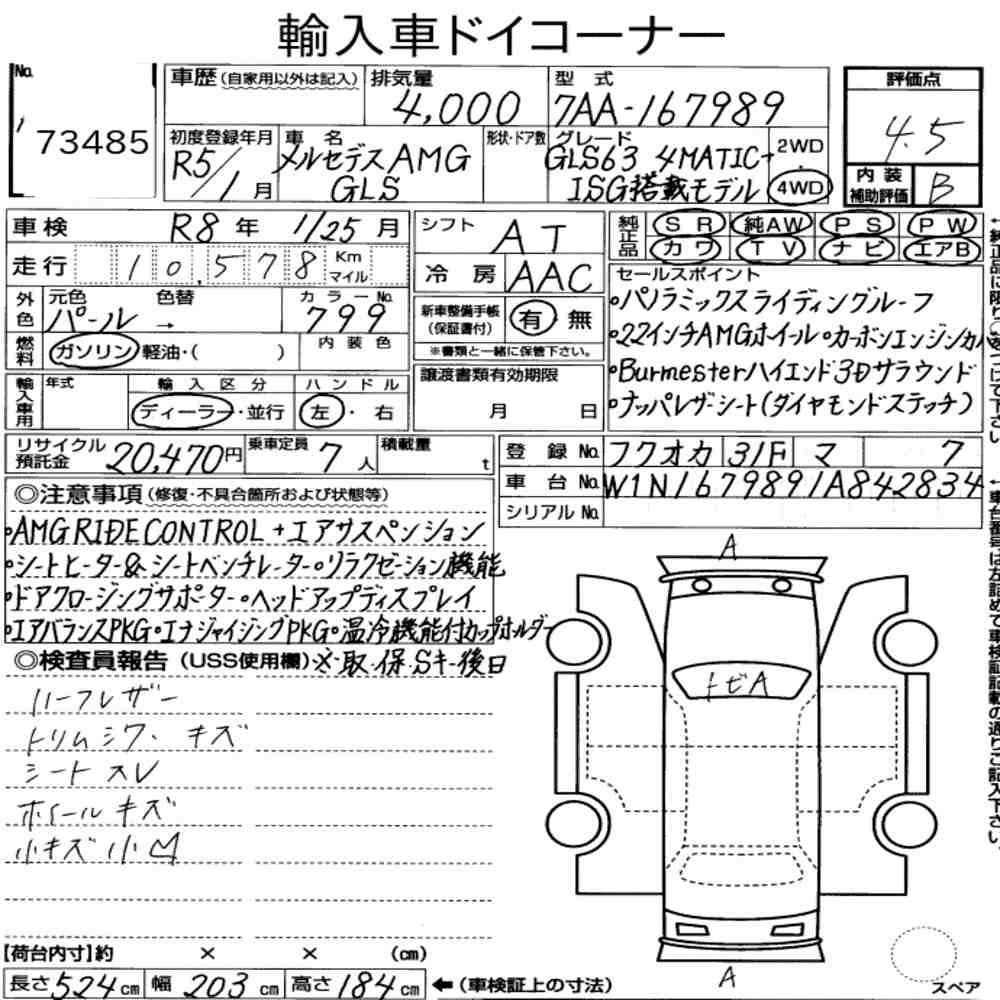 輸入車ドイコーナー
No. 73485
車歴(自家用以外は記入)
排気量 4,000
型式 7AA-167989
評価点 4.5
内装補助評価 B
初度登録年月 R5/1月
車名 メルセデスAMG GLS
形状・ドア数
グレード GLS63 4MATIC+
ISG搭載モデル
2WD
4WD
車検 R8年 1/25月
走行 10,578 Km マイル
シフト AT
冷房 AAC
純正品 SR 純AW PS PW
カワ TV ナビ エアB
セールスポイント
•パノラミックスライディングルーフ
•22インチAMGホイール•カーボンエンジンカバ
•Burmesterハイエンド3Dサラウンド
•ナッパレザーシート(ダイヤモンドステッチ)
外色 元色 パール → 色替
カラーNo. 799
燃料 ガソリン・軽油・( )
内装色
新車整備手帳(保証書付) 有 無
※書類と一緒に保管下さい。
譲渡書類有効期限
月 日
輸入車用 年式
輸入区分 ディーラー・並行
ハンドル 左・右
リサイクル預託金 20,470円
乗車定員 7人
積載量 t
登録No. フクオカ 31F マ 7
車台No. W1N1679891A842834
シリアルNo.
◎注意事項(修復・不具合箇所および状態等)
•AMG RIDE CONTROL+エアサスペンション
•シートヒーター&シートベンチレーター•リラクゼーション機能
•ドアクロージングサポーター•ヘッドアップディスプレイ
•エアバランスPKG•エナジャイジングPKG•温冷機能付カップホルダー
◎検査員報告(USS使用欄)※・取・保・Sキー後日
ハーフレザー
トリムシワ・キズ
シートスレ
ホイールキズ
小キズ小凹
A
トビA
A
スペア
【荷台内寸】約 × × (cm)
長さ524cm 幅203cm 高さ184cm ←(車検証上の寸法)
←車台番号は左詰めで車検証記載の通りご記入下さい。